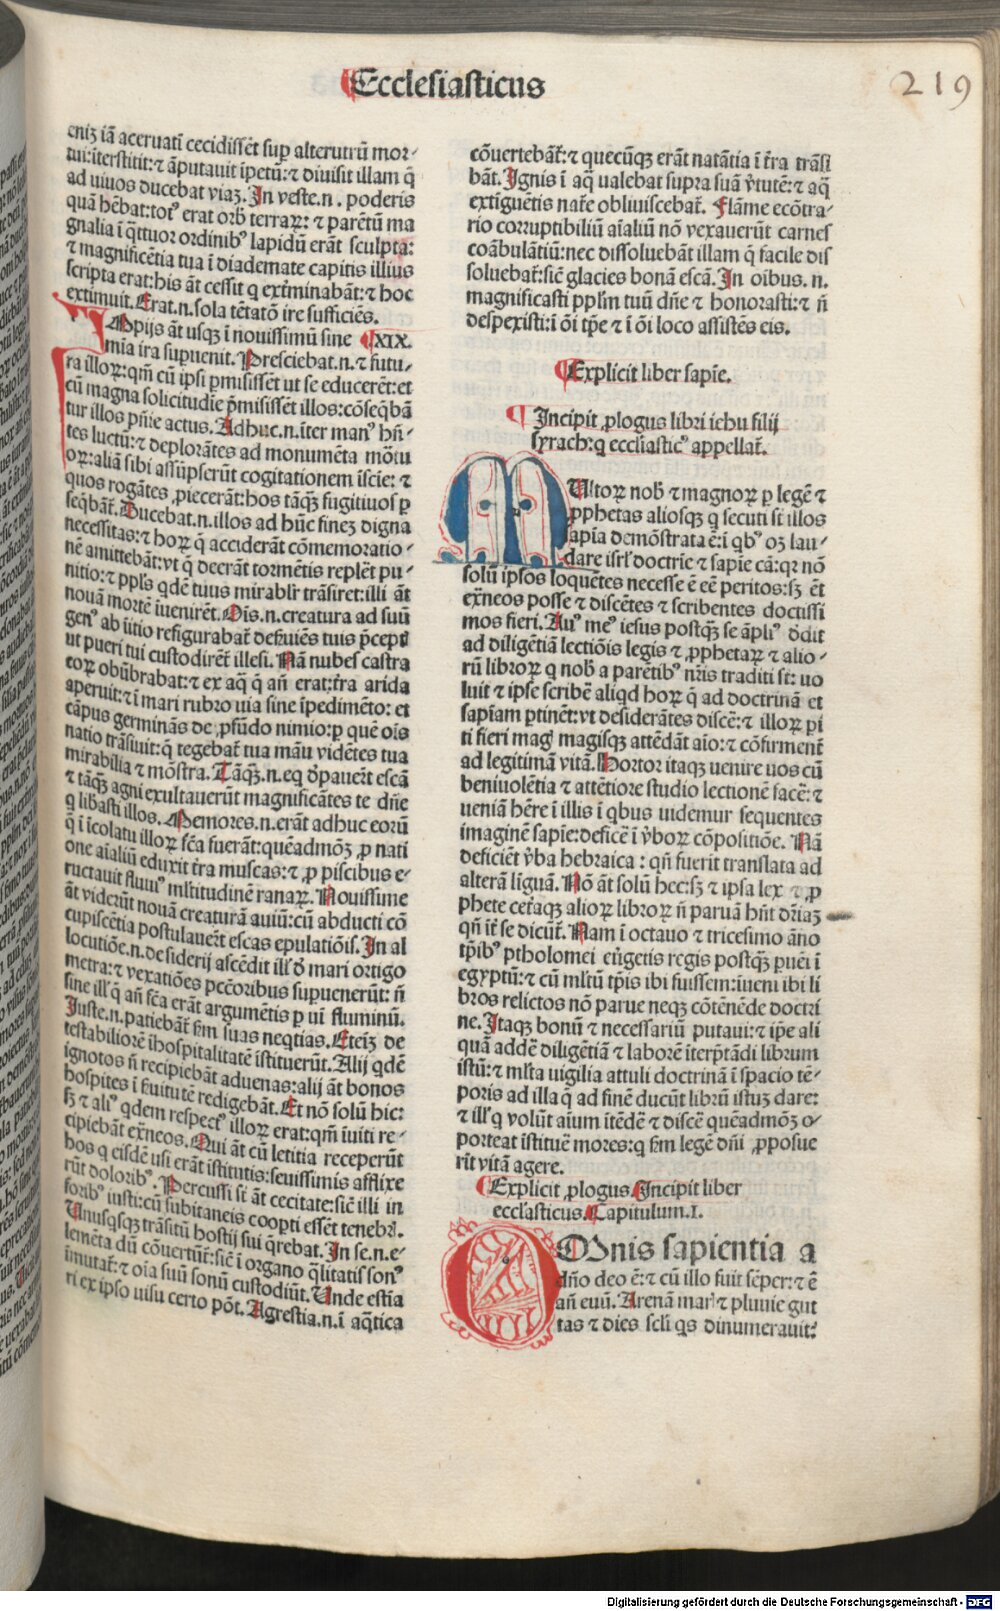 Ecclesiasticus
219
eniꝫ iā aceruati cecidissēt sup̄ alterutrū mor⸗
tui:īterstitit:⁊ āputauit īpetū:⁊ diuisit illam q̄
ad uiuos ducebat viaꝫ. In veste.n. poderis
quā hēbat:totꝰ erat orb̄ terraꝝ: ⁊ parētū ma
gnalia ī q̄ttuor ordinibꝰ lapidū erāt sculpta:
⁊ magnificētia tua ī diademate capitis illius
scripta erat:his āt cessit q exťminabāt:⁊ hoc
extimuit. Erat.n. sola tētatō ire sufficiēs.
IMpijs āt usqꝫ ī nouissimū sine XIX.
mia ira supuenit. Presciebat.n.⁊ futu⸗
ra illoꝝ:qm̄ cū ipsi ꝑmisissēt ut se educerēt:et
cū magna solicitudīe p̄misissēt illos:cōseqbā
tur illos pn̄ie actus. Adhuc.n.īter manꝰ hn̄⸗
tes luctū:⁊ deplorātes ad monumēta mōtu
oꝝ:aliā sibi assūpserūt cogitationem īscie: ⁊
quos rogātes ꝓiecerāt:hos tāqꝫ fugitiuos ꝑ
seqbāt. Ducebat.n.illos ad hūc fineꝫ digna
necessitas:⁊ hoꝝ q̄ acciderāt cōmemoratio⸗
nē amittebāt:vt q̄ deerāt tormētis replēt pu⸗
nitio:⁊ ppls̄ qdē tuus mirabilr̄ trāsiret:illi āt
nouā mortē īuenirēt. Oīs.n.creatura ad suū
genꝰ ab ītio refigurabať deseruiēs tuis p̄cepť
ut pueri tui custodirēť illesi. Nā nubes castra
toꝝ obūbrabat:⁊ ex aq̄ q̄ añ erat:ťra arida
aperuit:⁊ ī mari rubro uia sine īpedimēto: et
cāpus germinās de ꝓfūdo nimio:ꝑ quē oīs
natio trāsiuit:q̄ tegebať tua māu vidētes tua
mirabilia ⁊ mōstra. Tāqꝫ.n.eq dp̄auerť escā
⁊ tāqꝫ agni exultauerūt magnificātes te dn̄e
q libasti illos. Memores.n.erāt adhuc eorū
q̄ ī īcolatu illoꝝ fc̄a fuerāt:quēadmoꝫ ꝓ nati
one aīaliū eduxit ťra muscas:⁊ ꝓ piscibus e⸗
ructauit fluuiꝰ ml̄titudinē ranaꝝ. Nouissime
āt viderūt nouā creaturā auiū:cū abducti cō
cupiscētia postulauerť escas epulatiōis. In al
locutiōe.n.desiderij ascēdit ill̄ d̄ mari ortigo
metra:⁊ vexatiōes pecc̄oribus supuenerūt: n̄
sine ill̄ q̄ añ fc̄a erāt argumētis ꝑ ui fluminū.
Iuste.n.patiebāť sm̄ suas neqtias. Eteiꝫ de
testabiliorē īhospitalitatē īstituerūt. Alij qdē
ignotos n̄ recipiebāt aduenas:alij āt bonos
hospites ī ſuitutē redigebāt. Et nō solū hic:
sꝫ ⁊ aliꝰ qdem respectꝰ illoꝝ erat:qm̄ īuiti re⸗
cipiebāt exñeos. Qui āt cū letitia receperūt
hos q eisdē usi erāt īstitutis:seuissimis afflixe
rūt doloribꝰ. Percussi sť āt cecitate:sic̄ illi in
foribꝰ iusti:cū subitaneis coopti essēt tenebr̄.
Unusqsqꝫ trāsitū hostij sui qrebat. In se.n.e⸗
lemēta dū cōuertūť:sic̄ ī organo q̄litatis sonꝰ
īmutať:⁊ oīa suū sonū custodiūt. Unde estīa
ri ex ipso uisu certo pōt. Agrestia.n.ī aq̄tica
cōuertebāť:⁊ quecūqꝫ erāt natātia ī ťra trāsi
bāt. Ignis ī aq̄ ualebat supra suā v̄tutē:⁊ aq̄
extiguētis natr̄e obliuiscebať. Flāme ecōtra⸗
rio corruptibiliū aīaliū nō vexauerūt carnes
coābulātiū:nec dissoluebāt illam q̄ facile dis
soluebať:sic̄ glacies bonā escā. In oibus.n.
magnificasti pplm̄ tuū dn̄e ⁊ honorasti:⁊ n̄
despexisti:ī ōi tp̄e ⁊ ī ōi loco assistēs eis.
Explicit liber sapīe.
Incipit ꝓlogus libri iehu filij
syrach:q ecclīasticꝰ appellať.
MUltoꝝ nob̄ ⁊ magnoꝝ ꝑ legē ⁊
ꝓphetas aliosqꝫ q secuti sť illos
sapīa demōstrata ē:ī qbꝰ oꝫ lau⸗
dare isrl̄ doctrīe ⁊ sapīe cā:qꝛ nō
solū ipsos loquētes necesse ē eē peritos:sꝫ ēt
exñeos posse ⁊ discētes ⁊ scribentes doctissi
mos fieri. Auꝰ meꝰ iesus postqꝫ se āpliꝰ d̄dit
ad diligētiā lectiōis legis ⁊ ꝓphetaꝝ ⁊ alio⸗
rū libroꝝ q nob̄ a parētibꝰ nr̄is traditi sť: uo
luit ⁊ ipse scribē aliqd hoꝝ q̄ ad doctrinā et
sapīam ꝑtinēt:vt desiderātes discē:⁊ illoꝝ ꝑi
ti fieri magꝭ magisqꝫ attēdāt aīo:⁊ cōfirmenť
ad legitimā vitā. Hortor itaqꝫ uenire uos cū
beniuolētia ⁊ attētiore studio lectionē facē:⁊
ueniā hēre ī illis ī qbus uidemur sequentes
imaginē sapīe:deficē ī v̄boꝝ cōpositiōe. Nā
deficiēt v̄ba hebraica : qn̄ fuerit translata ad
alterā līguā. Nō āt solū hec:sꝫ ⁊ ipsa lex ⁊ ꝓ
phete ceťaqꝫ alioꝝ libroꝝ n̄ paruā hn̄t dr̄iaꝫ
qn̄ īť se dicūť. Nam ī octauo ⁊ tricesimo āno
tp̄ibꝰ ptholomei eūgetis regis postqꝫ ꝑuēi ī
egyptū:⁊ cū ml̄tū tp̄is ibi fuissem:iueni ibi li
bros relictos nō parue neqꝫ cōtēnēde doctri
ne. Itaqꝫ bonū ⁊ necessariū putaui:⁊ ip̄e ali
quā addē diligētiā ⁊ laborē iterp̄tādi librum
istū:⁊ ml̄ta uigilia attuli doctrinā ī spacio tē⸗
poris ad illa q̄ ad finē ducūt librū istuꝫ dare:
⁊ ill̄ q volūt aium itēdē ⁊ discē quēadmoꝫ o⸗
porteat īstituē mores:q sm̄ legē dn̄i ꝓposue
rīt vitā agere.
Explicit ꝓlogus. Incipit liber
eccl̄asticus. Capitulum.I.
OMnis sapientia a
dn̄o deo ē:⁊ cū illo fuit sēper:⁊ ē
añ euū. Arenā marꝭ ⁊ pluuie gut
tas ⁊ dies scl̄i qs dinumerauit?
Digitalisierung gefördert durch die Deutsche Forschungsgemeinschaft - DFG